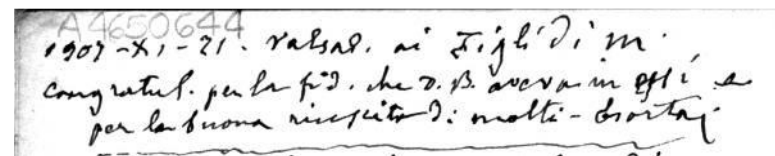 A4650644
1907-XI-21. Valsal. ai Figli di M.
congratul. per la fid. che D. B. aveva in essi e
per la buona riuscita di molti - Esortaz.